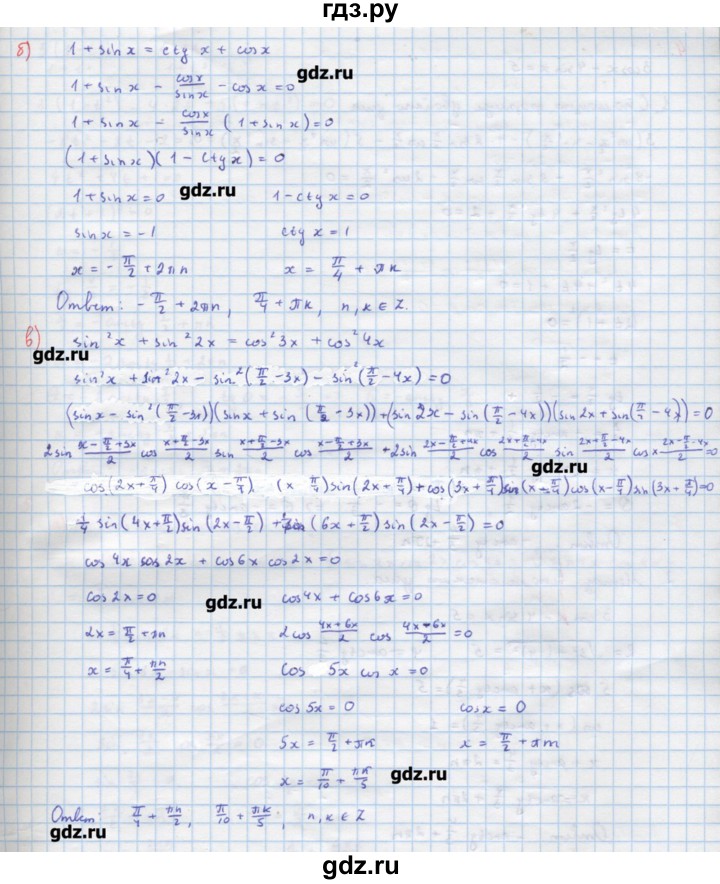 гдз.ру
б) 1 + sin x = ctg x + cos x
gdz.ru
1 + sin x - cos x / sin x - cos x = 0
1 + sin x - cos x / sin x (1 + sin x) = 0
(1 + sin x)(1 - ctg x) = 0
gdz.ru
1 + sin x = 0 1 - ctg x = 0
sin x = -1 ctg x = 1
x = -π/2 + 2πn x = π/4 + πk
Ответ: -π/2 + 2πn, π/4 + πk, n, k ∈ Z.
в) sin²x + sin²2x = cos²3x + cos²4x
gdz.ru
sin²x + sin²2x - sin²(π/2 - 3x) - sin²(π/2 - 4x) = 0
(sin x - sin²(π/2 - 3x))(sin x + sin(π/2 - 3x)) + (sin 2x - sin(π/2 - 4x))(sin 2x + sin(π/2 - 4x)) = 0
2 sin (x - π/2 + 3x)/2 cos (x + π/2 - 3x)/2 sin (x + π/2 - 3x)/2 cos (x - π/2 + 3x)/2 + 2 sin (2x - π/2 + 4x)/2 cos (2x + π/2 - 4x)/2 sin (2x + π/2 - 4x)/2 cos (2x - π/2 - 4x)/2 = 0
gdz.ru
cos(2x + π/4) cos(x - π/4) (x π/4) sin(2x + π/4) + cos(3x + π/4) sin(x - π/4) cos(x - π/4) sin(3x + π/4) = 0
1/4 sin(4x + π/2) sin(2x - π/2) + sin(6x + π/2) sin(2x - π/2) = 0
cos 4x cos 2x + cos 6x cos 2x = 0
cos 2x = 0 cos 4x + cos 6x = 0
gdz.ru
2x = π/2 + πn 2 cos (4x + 6x)/2 cos (4x - 6x)/2 = 0
x = π/4 + πn/2 cos 5x cos x = 0
cos 5x = 0 cos x = 0
5x = π/2 + πk x = π/2 + πm
x = π/10 + πk/5
gdz.ru
Ответ: π/4 + πn/2, π/10 + πk/5, n, k ∈ Z
gdz.ru
gdz.ru